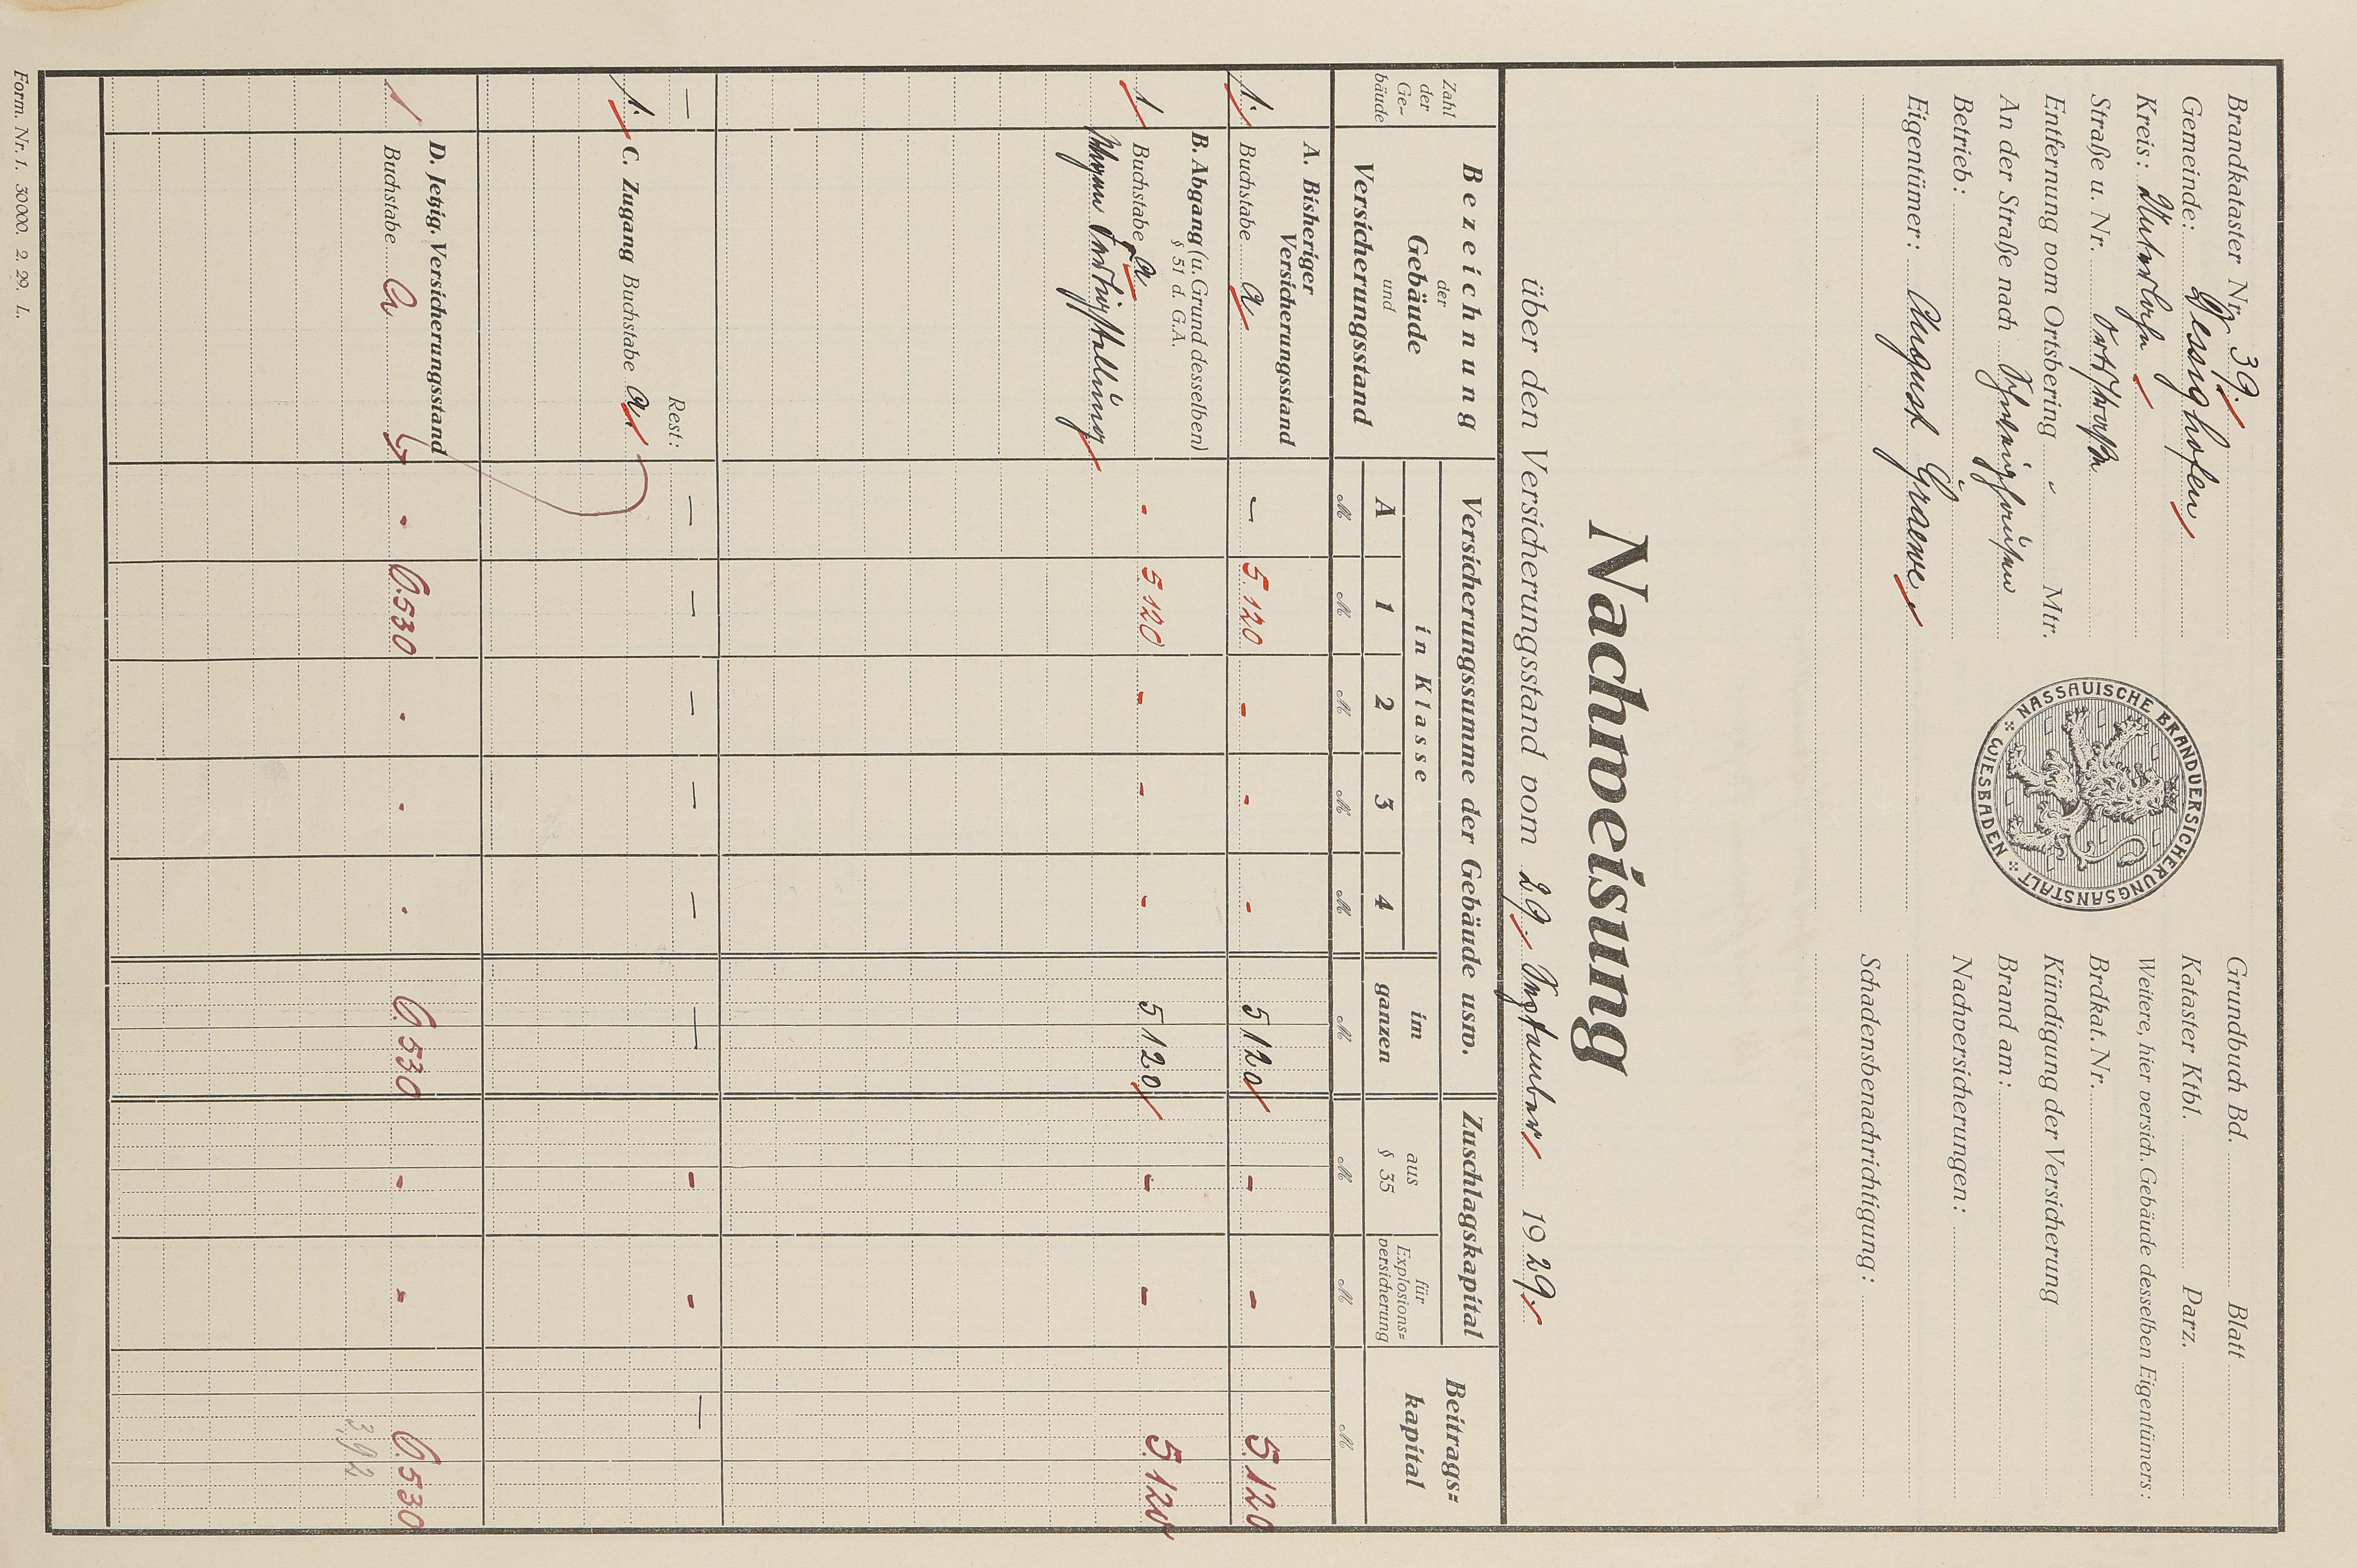 Brandkataster Nr. 39.
Gemeinde: Dessighofen
Kreis: Unterlahn
Straße u. Nr. Ortsstraße
Entfernung vom Ortsbering " Mtr.
An der Straße nach
Betrieb:
Eigentümer: August Graewe.
NASSAUISCHE BRANDVERSICHERUNGSANSTALT
WIESBADEN
Grundbuch Bd. Blatt
Kataster Ktbl. Parz.
Weitere, hier versich. Gebäude desselben Eigentümers:
Brdkat. Nr.
Kündigung der Versicherung
Brand am:
Nachversicherungen:
Schadensbenachrichtigung:
Nachweisung
über den Versicherungsstand vom 29. September 1929.
Zahl der Ge-bäude
Bezeichnung der Gebäude und Versicherungsstand
Versicherungssumme der Gebäude usw.
in Klasse
A 1 2 3 4
im ganzen
Zuschlagskapital
aus § 35
für Explosions=versicherung
Beitrags=kapital
M M M M M M M M M
A. Bisheriger Versicherungsstand
1. Buchstabe a — 5.120 - - - 5120 - - 5.120
B. Abgang (u. Grund desselben)
§ 51 d. G.A.
1. Buchstabe a - 5120 - - - 5120 - - 5.120
Wegen Fertigstellung
— Rest: — — — — — — - - —
1. C. Zugang Buchstabe a
D. Jetzig. Versicherungsstand
1 Buchstabe a . 6.530 . . . 6.530 - - 6.530
3,92
Form. Nr. 1. 30000. 2. 29. L.